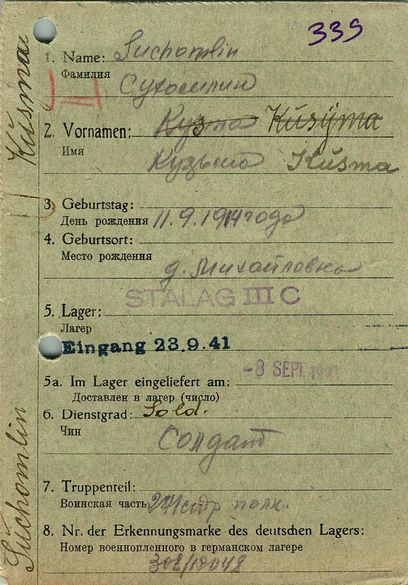 339
1. Name: Suchomlin
Фамилия
Сухомлин
2. Vornamen: Кузма Kúsÿma
Имя
Кузьма Kúsma
3. Geburtstag:
День рождения 11.9.1914 года
4. Geburtsort:
Место рождения
д. Михайловка
STALAG III C
5. Lager:
Лагерь
Eingang 23.9.41
-8 SEPT. 1941
5a. Im Lager eingeliefert am:
Доставлен в лагерь (число)
6. Dienstgrad: Sold.
Чин
Солдат
7. Truppenteil:
Воинская часть стр полк.
8. Nr. der Erkennungsmarke des deutschen Lagers:
Номер военнопленного в германском лагере
Kúsma
Suchomlin